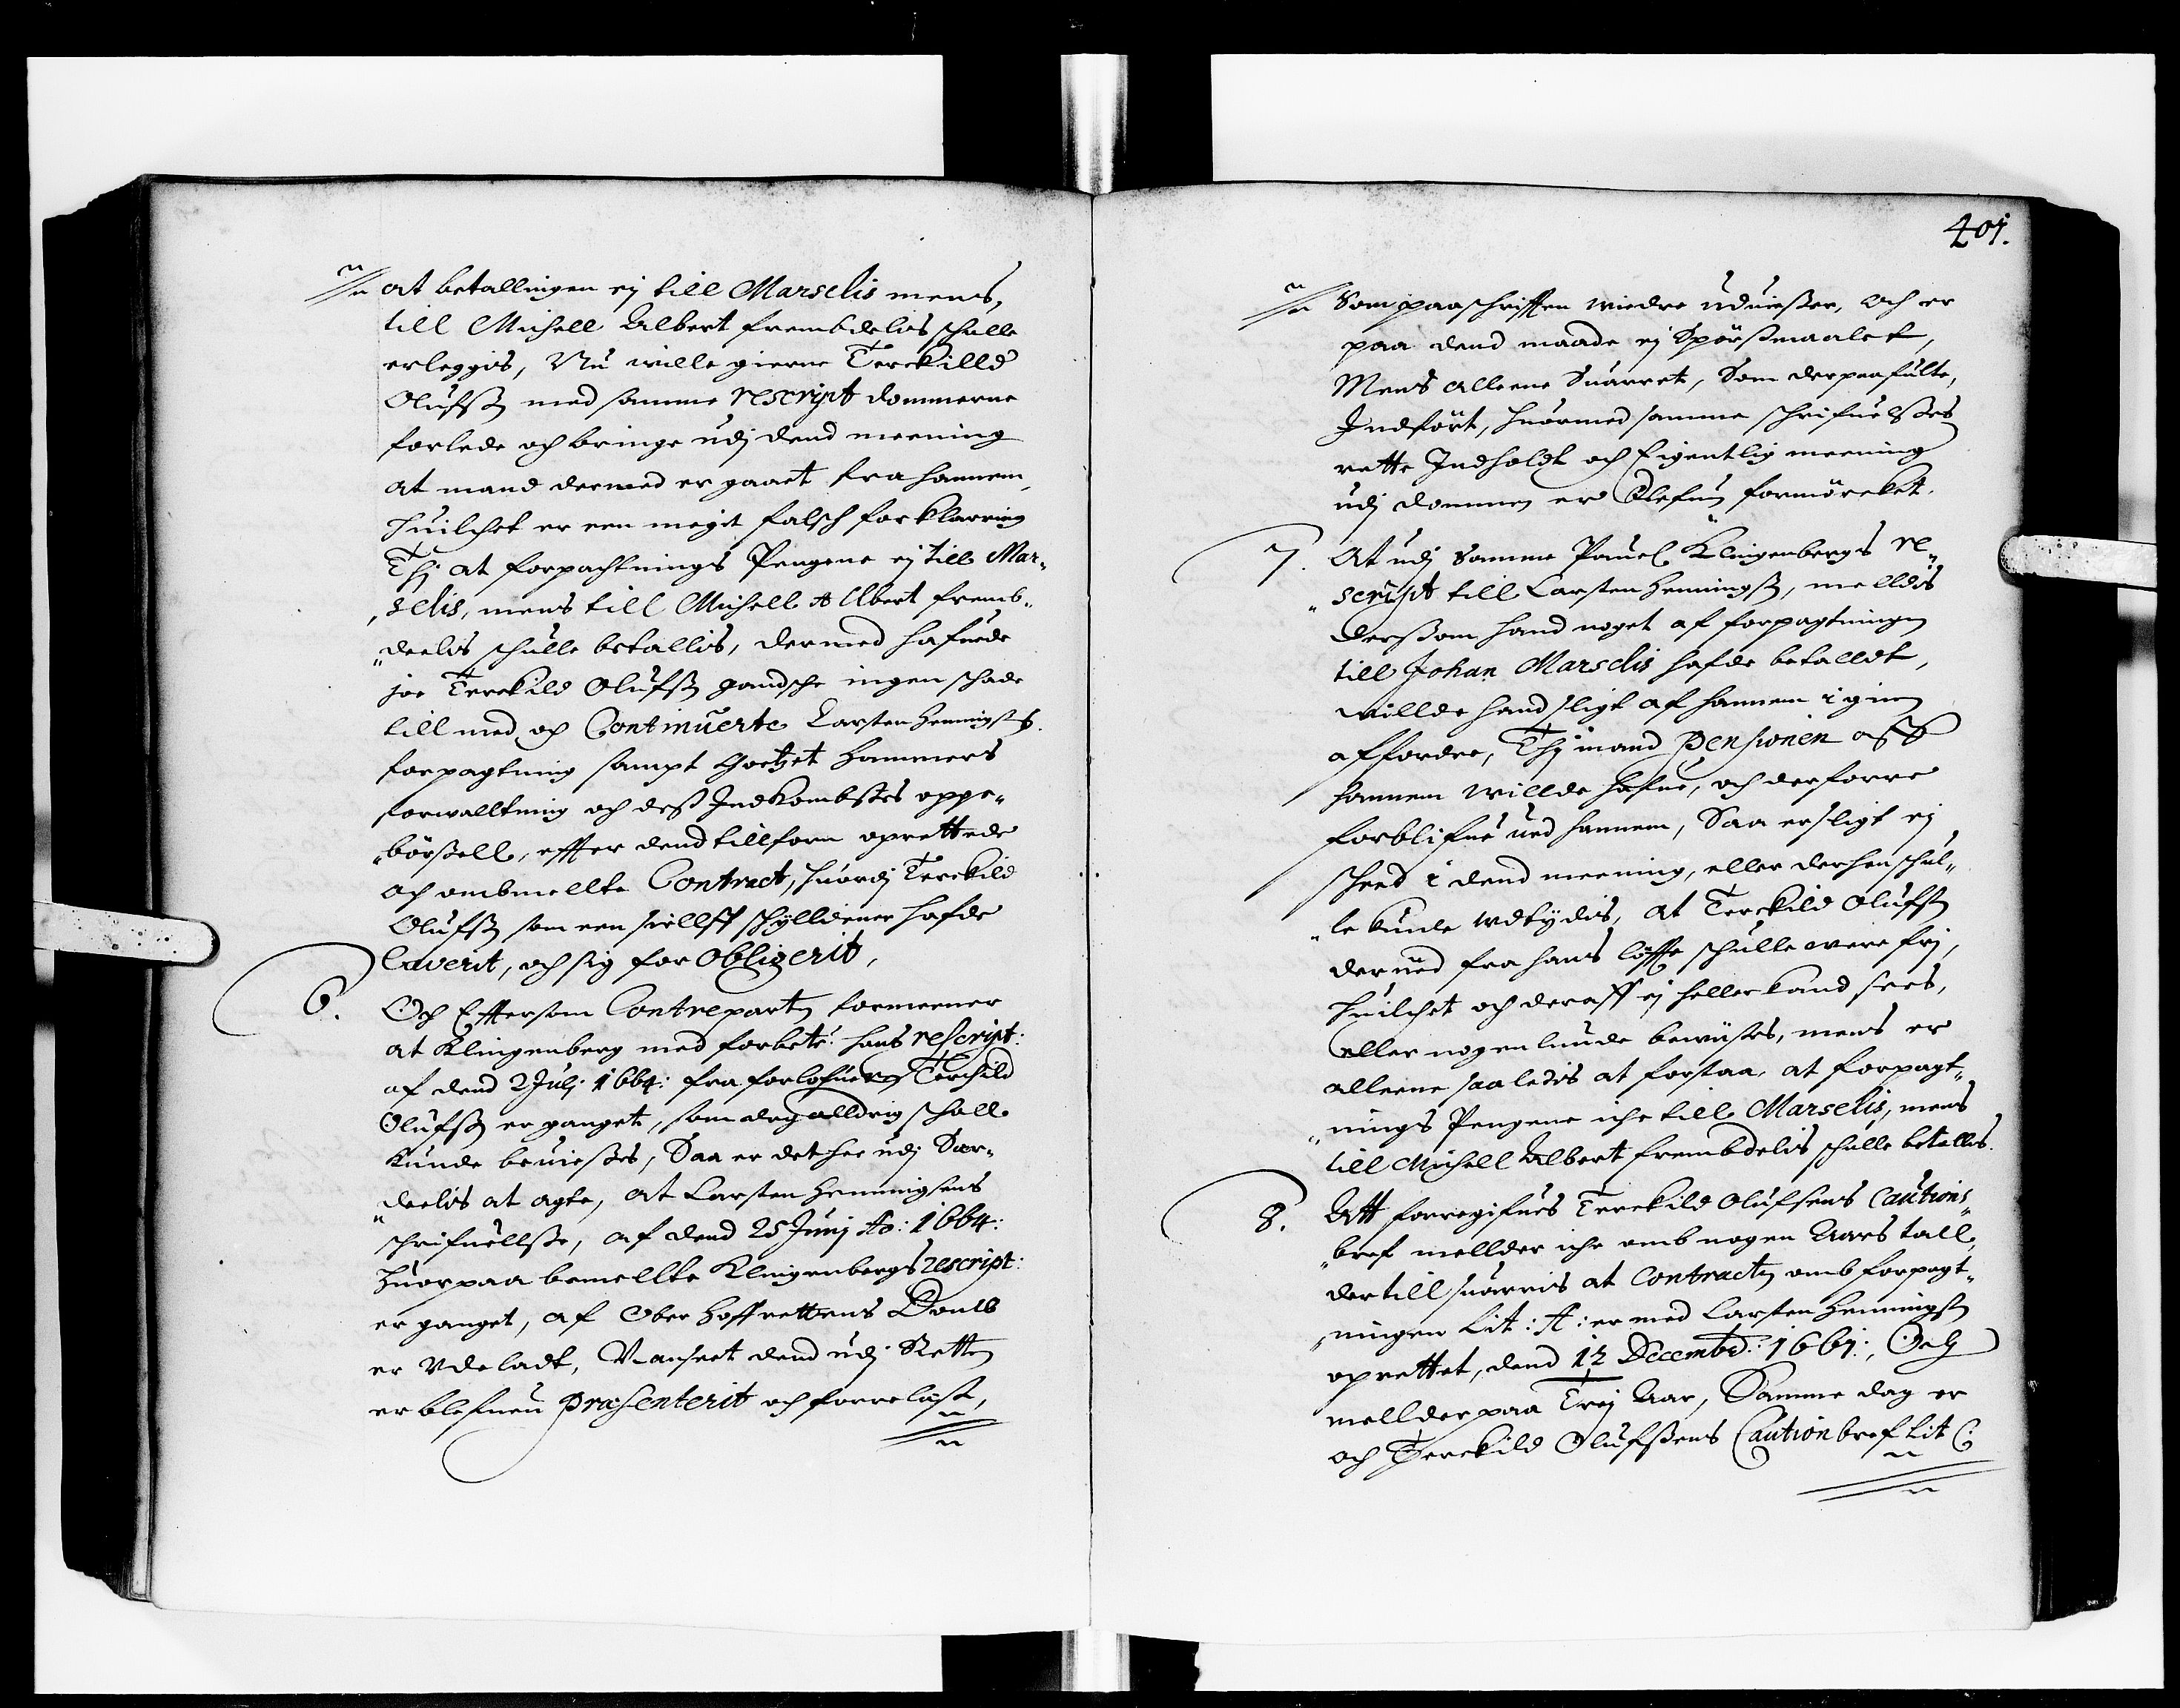 at betallingen ej till Marselis mens,
till Michell Albert frembdelis schulle
erleggis, Nu wille gierne Terckilld
Olufsß med samme rescript dommerne
forlede och bringe udj dend meening
at mand dermed er gaaet fra hannem,
huilchet er een megit falsch forklarring
Thj at forpachtnings Pengene ej till Mar„
„selis, mens till Michell Albert fremb„
„deelis schulle betallis, dermed hafuede
joe Terckild Olufsß gandsche ingen schade
till med, och Continuerte Carsten Henningsß
forpagtning sampt Hammers
forwalltning och deß Indkombstes oppe„
„börßell, effter dend tillforn oprettede
och ombmellte Contract, huordj Terckild
Olufsß som een siellff schylldener hafde
Caverit, och sig for Obligerit,
6. Och Effterson Contreparten formeener
at Klingenberg med forbete: hans rescript:
af dend 2 Julj 1664: fra forlofueren Terchild
Olufsß er ganget, som dog alldrig schall
kunde beuießes, Saa er det her udj Sær„
„deelis at agte, at Carsten Henningsens
schrifuellße, af dend 25 Junj Ao: 1664:
huorpaa bemellte Klingenbergs rescript:
er ganget, af Ober Hoff rettens Domb
er Udeladt, Uanseet dend udj Retten
er blefuen præsenterit och forrelæst,
401.
Som paaschrifften wiedre uduießer, och er
paa dend maade ej Spörßmaalet,
Mens alleene Suarret, Som derpaa fulte,
Indfört, huormed samme schrifuelßes
rette Indholdt och Eigentlig meening
udj dommen er Blefuen formörcket.
7. At udj Samme Pouel Klingenbergs re„
„script till Carsten Henningsß, melldis
derßom hand noget af forpagtningen
till Johan Marselis hafde betalldt,
willde hand sligt af hannem igien
affordre, Thj mand pensionen aff
hannem willde hafue, och derforre
forblifue ued hannem, Saa er sligt ej
scheed i dend meening, eller derhen schul„
„le kunde udtydis, at Terckild Olufsß
derued fra hans löffte schulle were frj,
huilchet och deraff ej heller kand sees,
eller nogenlunde bewißes, mens er
alleene saaledis at forstaa, at forpagt„
„nings Pengene iche till Marselis, mens
till Michell Albert frembdelis schulle betallis.
8. Att forregifues Terckild Olufsens Cautions
„bref mellder iche omb nogen Aars tall,
dertill suarris at Contracten omb forpagt„
„ningen Lit: A: er med Carsten Henningsß
oprettet, dend 12 Decembr: 1661:, Och
mellder paa Trej Aar, Samme dag er
och Terckild Olufßens Caution bref Lit C: